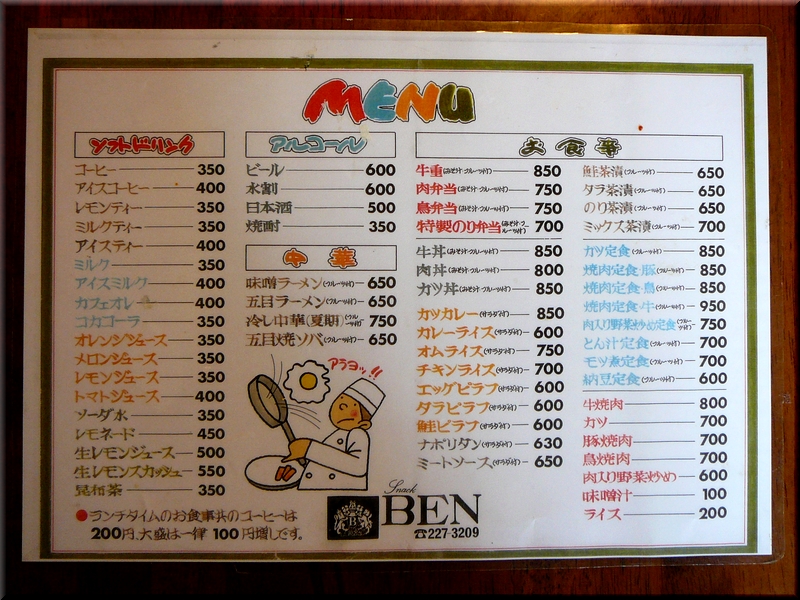 MENU
ソフトドリンク
コーヒー 350
アイスコーヒー 400
レモンティー 350
ミルクティー 350
アイスティー 400
ミルク 350
アイスミルク 400
カフェオレ 400
コカコーラ 350
オレンジジュース 350
メロンジュース 350
レモンジュース 350
トマトジュース 400
ソーダ水 350
レモネード 450
生レモンジュース 500
生レモンスカッシュ 550
昆布茶 350
●ランチタイムのお食事共のコーヒーは
200円、大盛は一律 100円増しです。
アルコール
ビール 600
水割 600
日本酒 500
焼酎 350
中華
味噌ラーメン(フルーツ付) 650
五目ラーメン(フルーツ付) 650
冷し中華(夏期)(フルーツ付) 750
五目焼ソバ(フルーツ付) 650
アラヨッ!!
お食事
牛重(みそ汁・フルーツ付) 850
肉弁当(みそ汁・フルーツ付) 750
鳥弁当(みそ汁・フルーツ付) 750
特製のり弁当(みそ汁・フルーツ付) 700
牛丼(みそ汁・フルーツ付) 850
肉丼(みそ汁・フルーツ付) 800
カツ丼(みそ汁・フルーツ付) 850
カツカレー(サラダ付) 850
カレーライス(サラダ付) 600
オムライス(サラダ付) 750
チキンライス(サラダ付) 700
エッグピラフ(サラダ付) 600
タラピラフ(サラダ付) 600
鮭ピラフ(サラダ付) 600
ナポリタン(サラダ付) 630
ミートソース(サラダ付) 650
鮭茶漬(フルーツ付) 650
タラ茶漬(フルーツ付) 650
のり茶漬(フルーツ付) 650
ミックス茶漬(フルーツ付) 700
カツ定食(フルーツ付) 850
焼肉定食・豚(フルーツ付) 850
焼肉定食・鳥(フルーツ付) 850
焼肉定食・牛(フルーツ付) 950
肉入り野菜炒め定食(フルーツ付) 750
とん汁定食(フルーツ付) 700
モツ煮定食(フルーツ付) 700
納豆定食(フルーツ付) 600
牛焼肉 800
カツ 700
豚焼肉 700
鳥焼肉 700
肉入り野菜炒め 600
味噌汁 100
ライス 200
Snack
BEN
☎227-3209